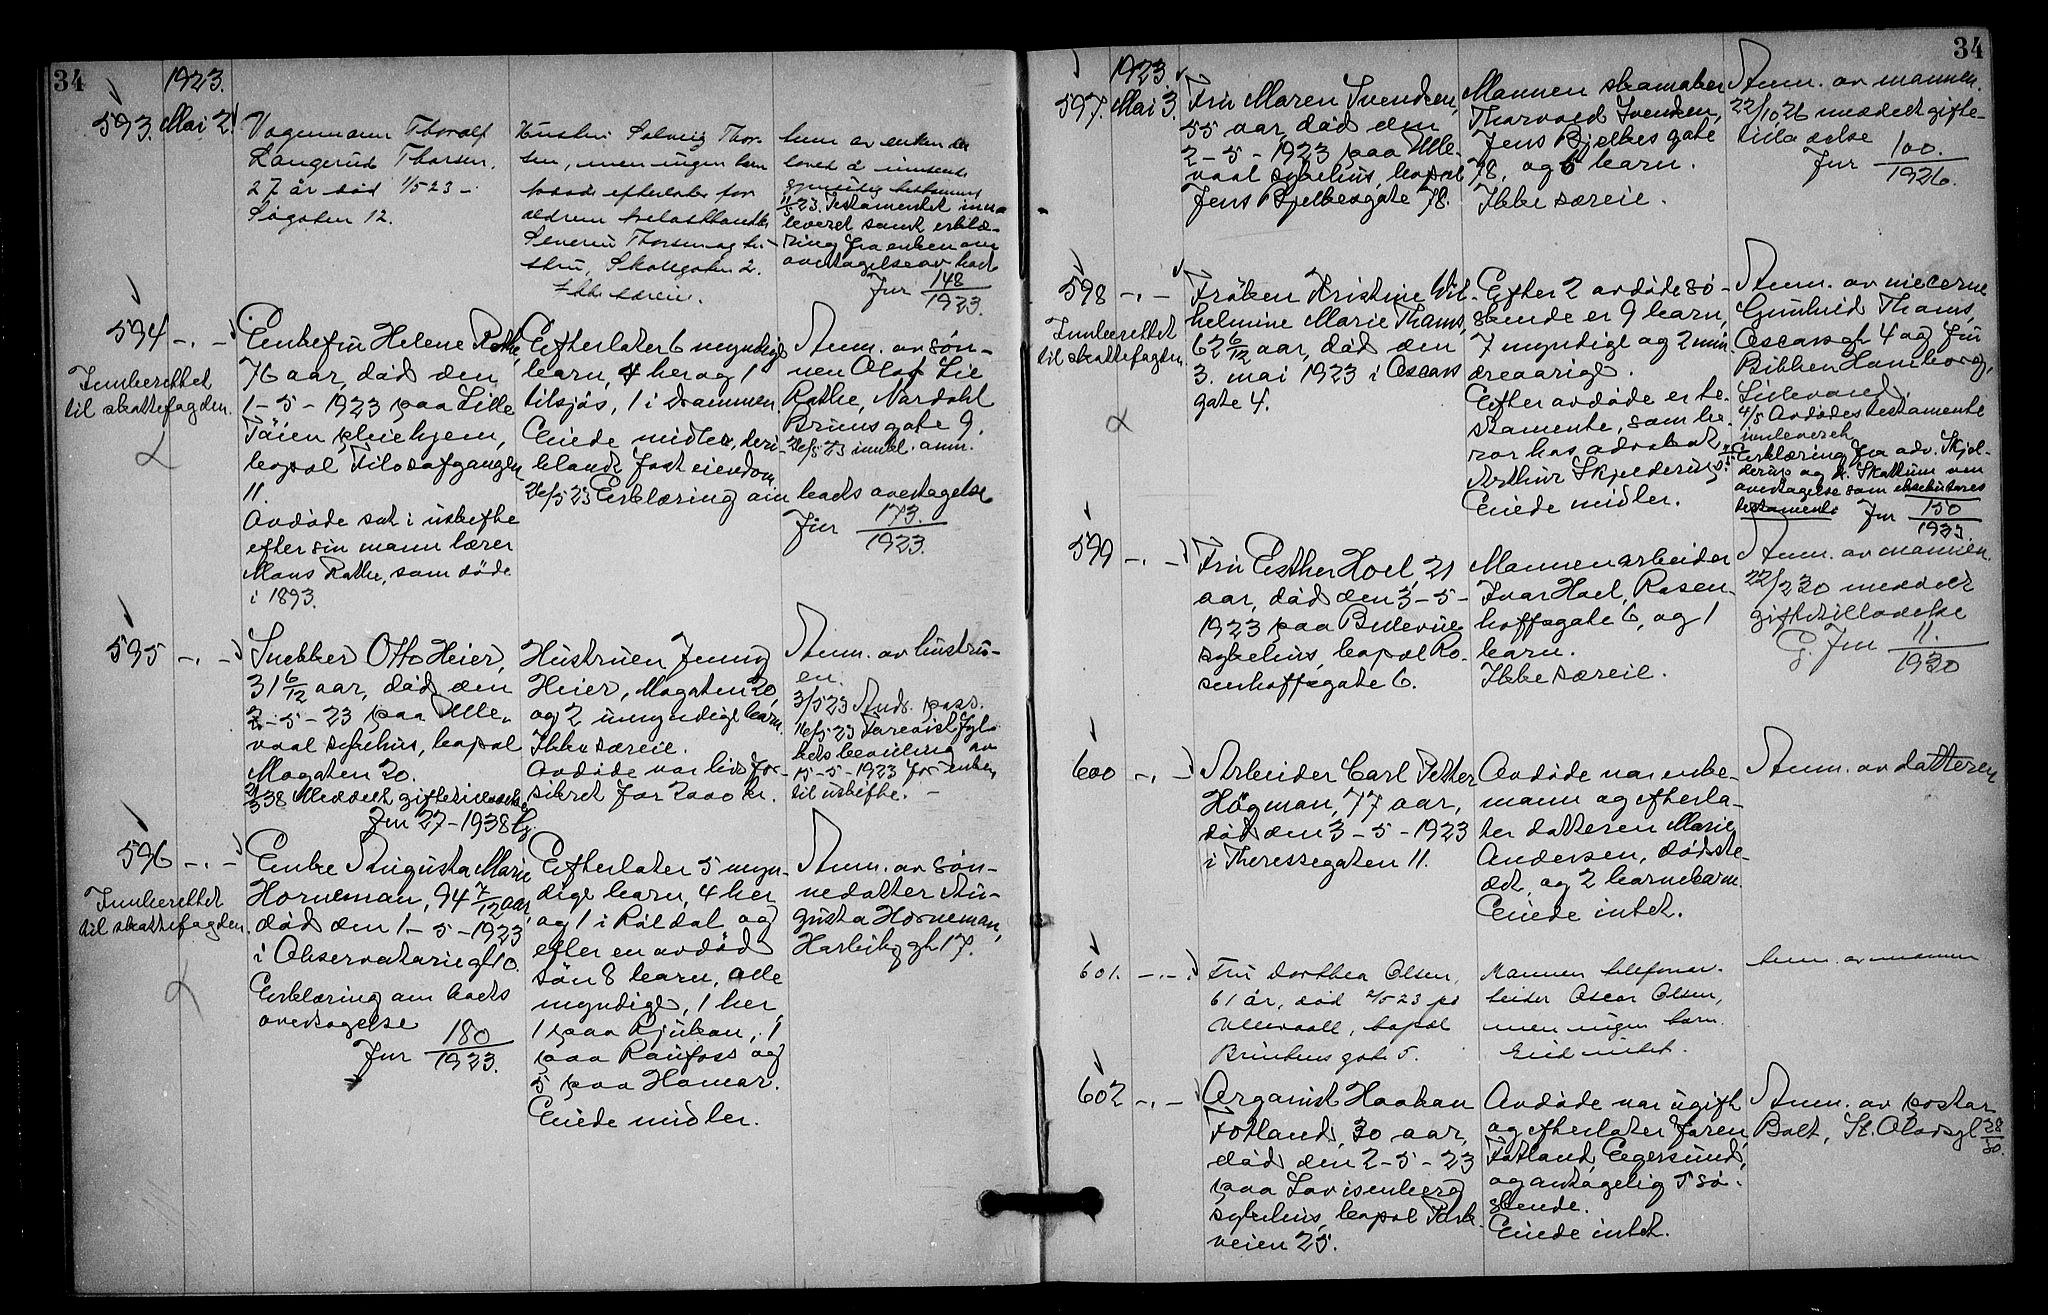 34
1923.
593. Mai 2.
Vognmann Thoralf
Langerud Thorsen,
27 år død 1/5 23 –
Søgaten 12.
Hustru Solveig Thor-
sen, men ingen barn
efterlater for-
ældrene
Severin Thorsen og hu-
stru, Skolegaten 2.
Ikke særeie.
Anm. av enken der
lovet å innsende
gjensidig testament
11/5 23. Testamentet inn-
leveret samt erklæ-
ring fra enken om
overtagelse av boet
Jnr 148/1923.
594 –.–
Innberettet
til skattefogden.
Enkefru Helene Rathe,
76 aar, død den
1-5-1923 paa Lille
Tøien pleiehjem,
bopæl Filosofgangen
11.
Avdøde sat i uskifte
efter sin mann lærer
Mons Rathe, som døde
i 1893.
Efterlater 6 myndige
barn, 4 her og 1
tilsjøs, 1 i Drammen.
Eiede midler, deri-
blandt fast eiendom.
26/5 23 Erklæring om boets overtagelse
Anm. av søn-
nen Olaf Lie
Rathe, Nordahl
Brunsgate 9.
26/5 23 innbl. anm.
Jnr 173./1923.
595 –.–
Snekker Otto Heier,
31 6/12 aar, død den
2-5-23 paa Ulle-
vaal sykehus, bopæl
Mogaten 20.
2/3 38 Meddelt giftetilladelse
Jnr 27-1938
Hustruen Jenny
Heier, Mogaten 20,
og 2 umyndige barn.
Ikke særeie.
Avdøde var livsfor-
sikret for 2000 kr.
Anm. av hustru-
en.
3/5 23 Unds. pass.
16/5 23 Forevist fyl-
kets bevilling av
15-5-1923 for enken
til uskifte. –
596 –.–
Innberettet
til skattefogden.
Enke Augusta Marie
Horneman, 94 7/12 aar,
død den 1-5-1923
i Observatoriegt 10.
Erklæring om boets
overtagelse
Jnr 180/1923.
Efterlater 5 myn-
dige barn, 4 her
og 1 i Røldal og
efter en avdød
søn 8 barn, alle
myndige, 1 her,
1 paa Rjukan, 1
paa Raufoss og
5 paa Hamar.
Eiede midler.
Anm. av søn-
nedatter Au-
gusta Horneman,
Harbitz gt 17.
34
1923.
597. Mai 3.
Fru Maren Svendsen,
55 aar, død den
2-5-1923 paa Ulle-
vaal sykehus, bopæl
Jens Bjelkesgate 78.
Mannen skomaker
Thorvald Svendsen,
Jens Bjelkes gate
78, og 6 barn.
Ikke særeie.
Anm. av mannen.
22/10 26 meddelt gifte-
tilladelse
Jnr 100./1926.
598 –.–
Innberettet
til skattefogden.
Frøken Kristine Wil-
helmine Marie Thams,
62 6/12 aar, død den
3. mai 1923 i Oscars
gate 4.
Efter 2 avdøde sø-
skende er 9 barn,
7 myndige og 2 min-
dreaarige.
Efter avdøde er te-
stamente, som be-
ror hos advokat
Arthur Skjelderup.
Eiede midler.
Anm. av niecerne
Gunhild Thams,
Oscarsgt 4 og fru
Bibben Homborg,
Lillevand.
4/5 Avdødes testamente
innleveret.
Erklæring fra adv. Skjel-
derup og dr. Skattum om
overtagelse som eksekutores
testamenti Jnr 150/1923.
599 –.–
Fru Esther Hoel, 21
aar, død den 3-5-
1923 paa Bellevue
sykehus, bopæl Ro-
senhoffsgate 6.
Mannen arbeider
Ivar Hoel, Rosen-
hoffsgate 6, og 1
barn.
Ikke særeie.
Anm. av mannen.
22/2 30 meddelt
giftetilladelse
G. Jnr 11./1930
600 –.–
Arbeider Carl Petter
Högman, 77 aar,
død den 3-5-1923
i Theressegaten 11.
Avdøde var enke-
mann og efterla-
ter datteren Marie
Andersen, dødsste-
det, og 2 barnebarn.
Eiede intet.
Anm. av datteren
601. –.–
Fru Dorthea Olsen,
61 år, død 2/5 23 på
Ullevaall, bopæl
gate 5.
Mannen telefonar-
beider Oscar Olsen,
men ingen barn.
Eied intet.
Anm. av mannen
602 –.–
Organist Haakon
Fotland, 30 aar,
død den 2-5-23
paa Lovisenberg
sykehus, bopæl Park-
veien 25.
Avdøde var ugift
og efterlater faren
Fotland, Egersund,
og antagelig 5 sø-
skende.
Eiede intet.
Anm. av pastor
Bolt, St. Olavsgt 28/30.